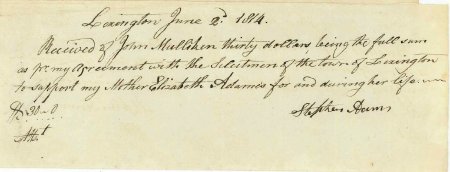 Lexington June 2d 1814.
Received of John Mulliken thirty dollars being the full sum
as pr. my agreement with the Selectmen of the town of Lexington
to support my Mother Elizabeth Adams for and during her life
$30-0
Stephen Adams
Att